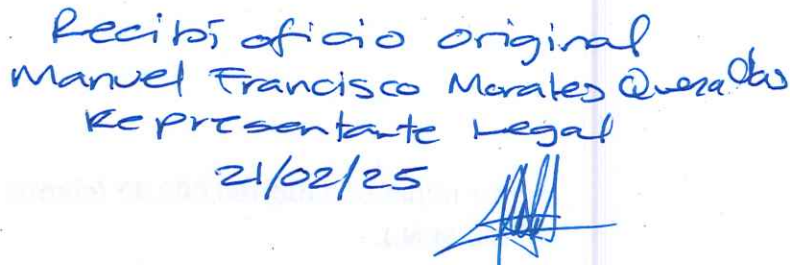 Recibí oficio original
Manuel Francisco Morales
Representante Legal
21/02/25